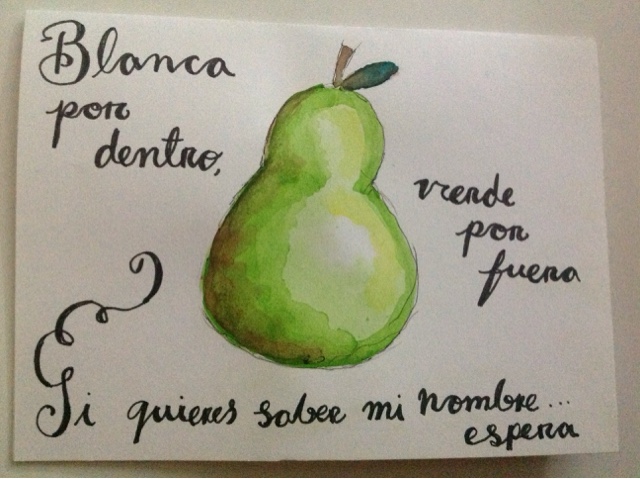 Blanca
por
dentro,
verde
por
fuera
Si quieres saber mi nombre...
espera